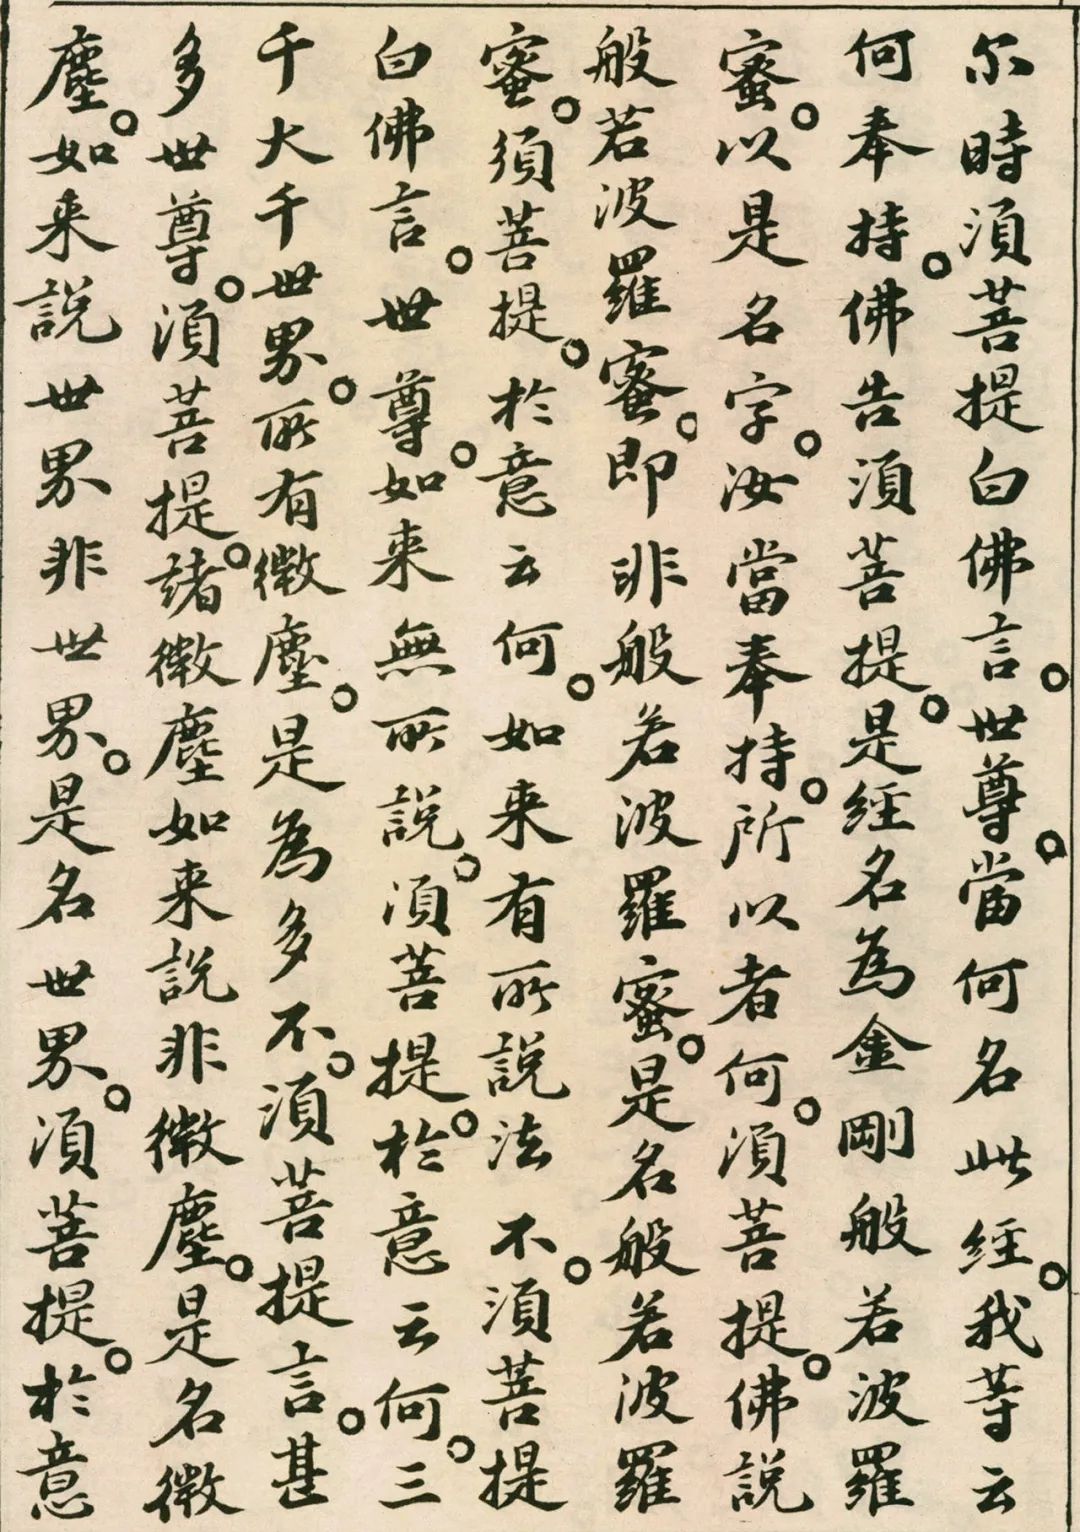 尔時湏菩提白佛言。世尊。當何名此經。我等云
何奉持。佛告湏菩提。是經名為金剛般若波羅
蜜。以是名字。汝當奉持。所以者何。湏菩提。佛說
般若波羅蜜。即非般若波羅蜜。是名般若波羅
蜜。須菩提。於意云何。如来有所說法不。湏菩提
白佛言。世尊。如来無所說。湏菩提。於意云何。三
千大千世界。所有微塵。是為多不。湏菩提言。甚
多世尊。湏菩提。諸微塵如来說非微塵。是名微
塵。如来說世界非世界。是名世界。湏菩提。於意